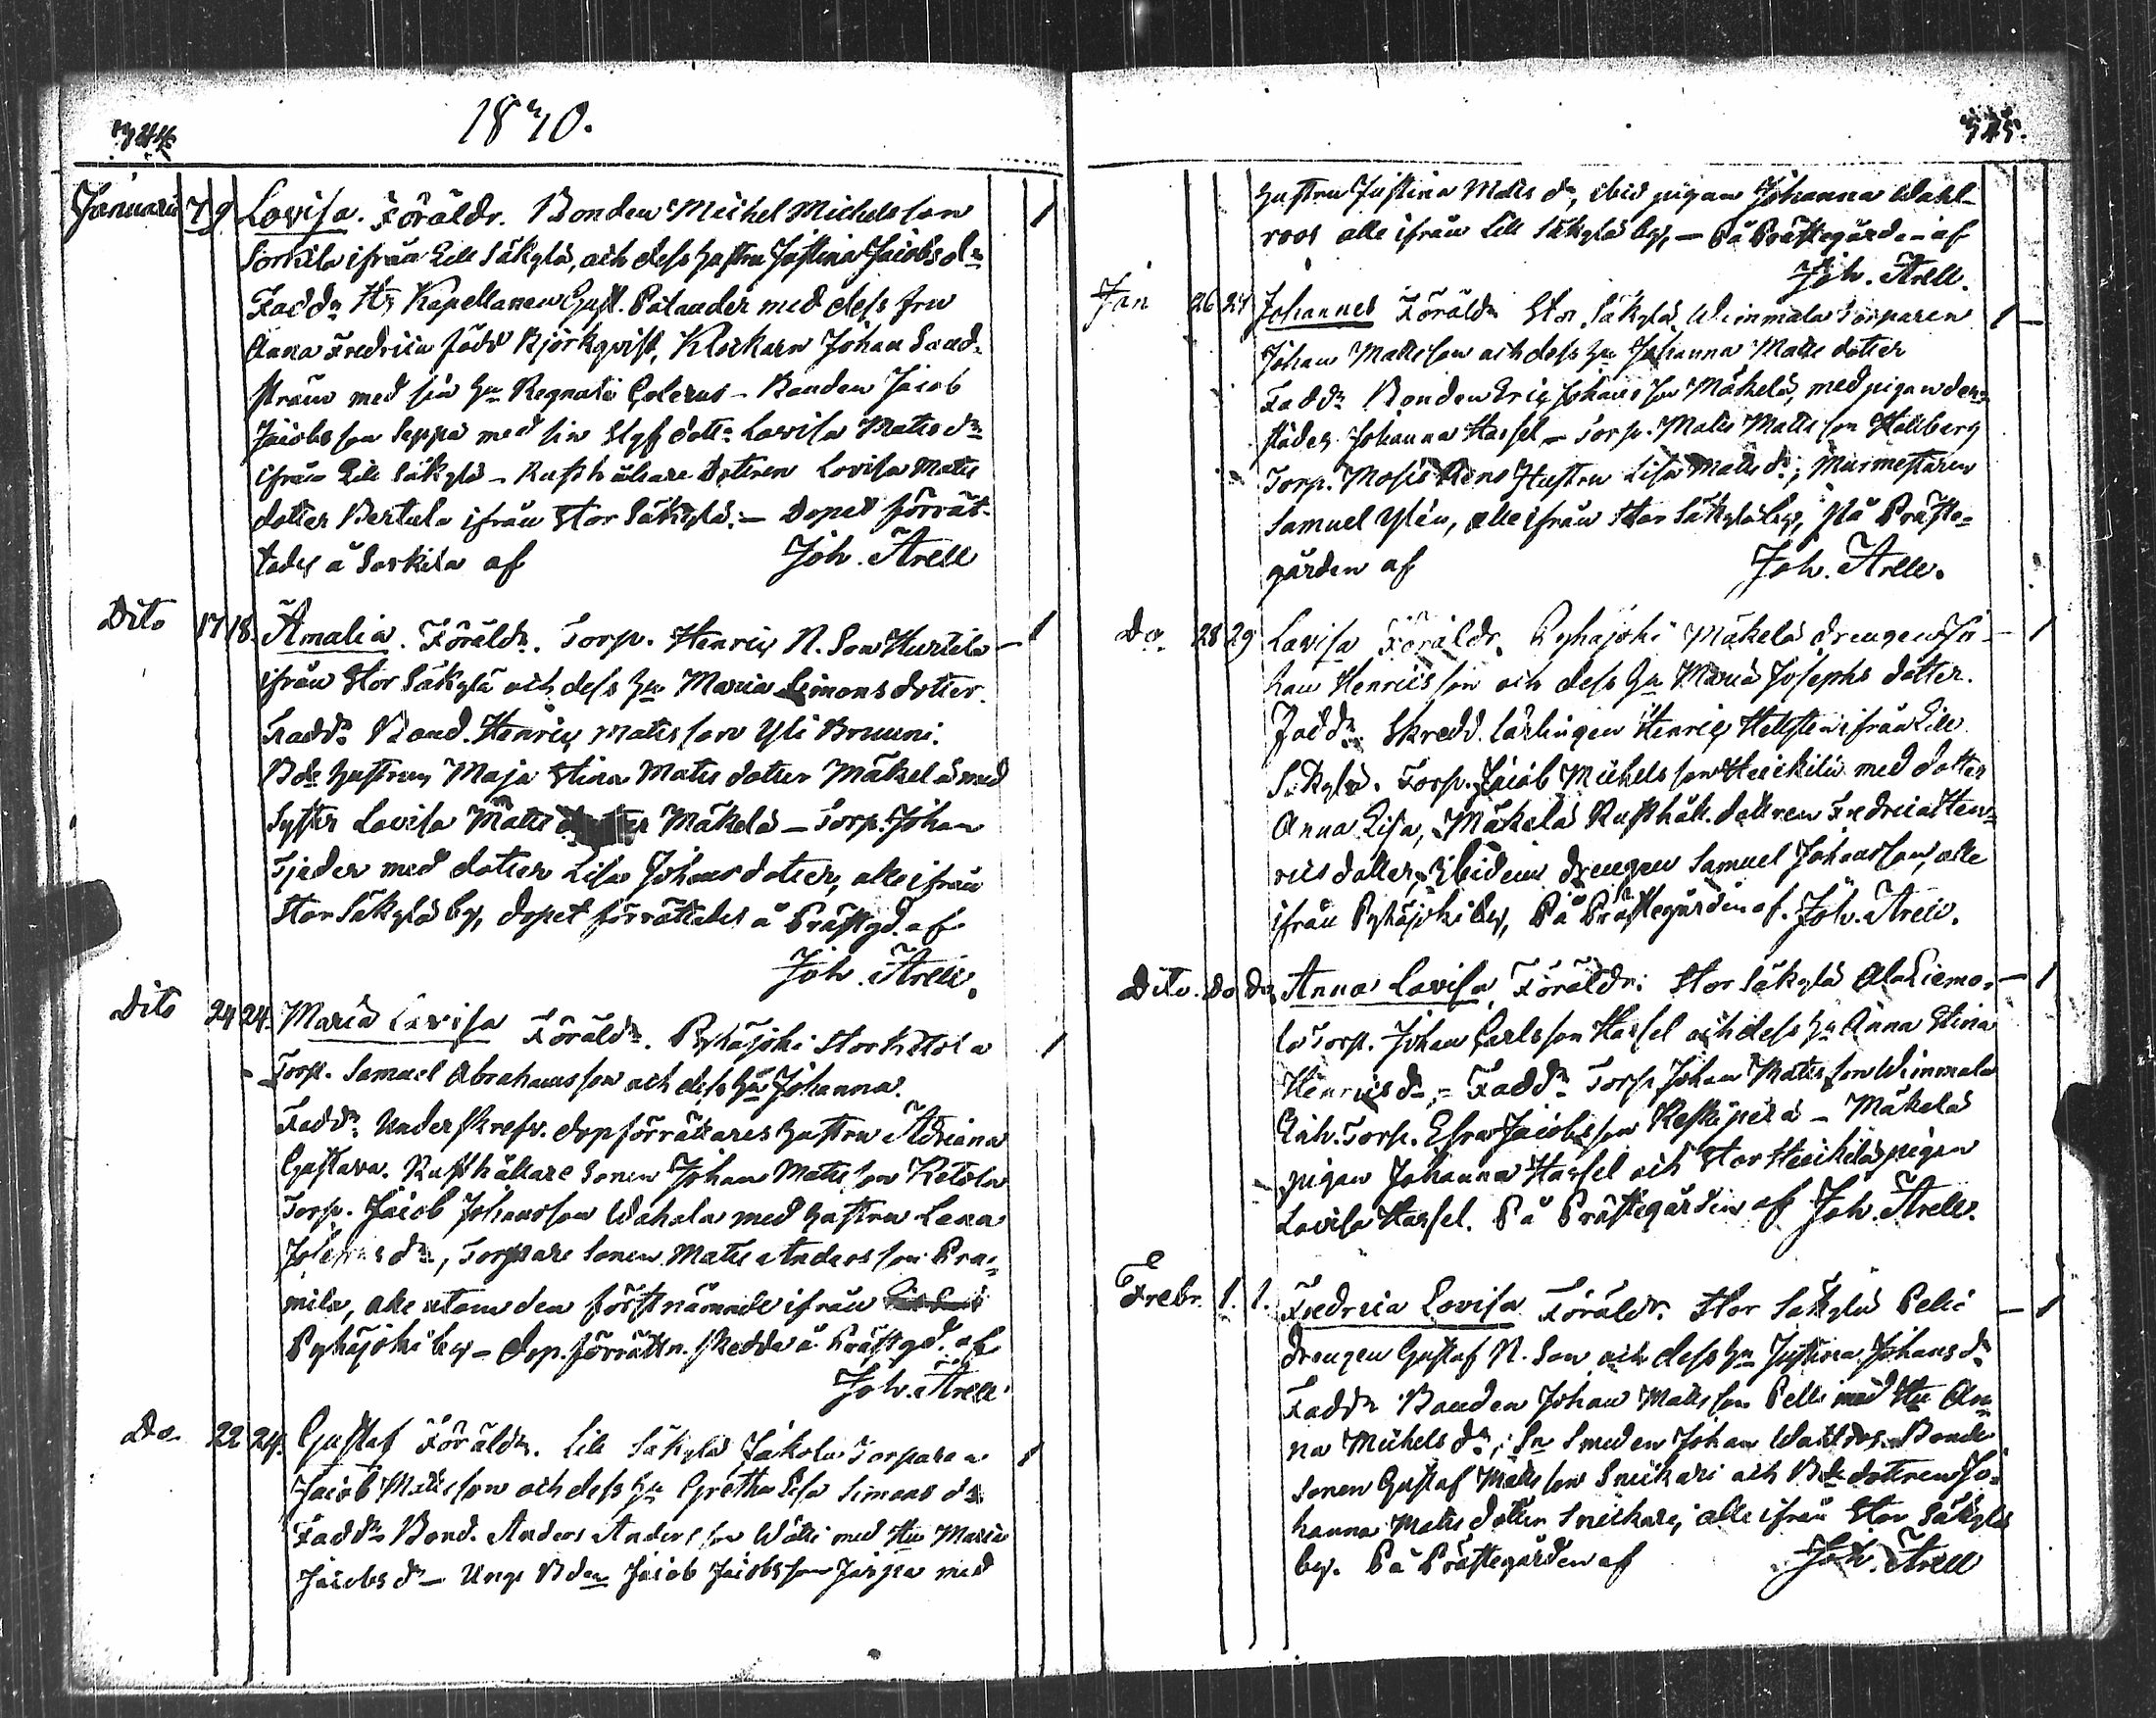 344
1840.
Januarii 7 9 Lovisa. Föräldr. Bonden Michel Michelsson
Sorkila ifrån Lill Säkylä, och dess hustru Justina Jacobs dr
Faddr Hr Kapellanen Gust. Polander med dess fru
Anna Fredrica född Björkqvist, Klockarn Johan Sand-
ström med sin Hu Regnata Polerus - Bonden Jacob
Jacobsson Seppä med sin Styfdottr Lovisa Matts dr
ifrån Lill Säkylä - Rusthållare Dottren Lovisa Matts
dotter Bertula ifrån Stor Säkylä. - Dopet förrät-
tades å Sorkila af Joh. Arell
Dito 17 18. Amalia. Föräldr. Torp. Henric N. Son Hurtila 1
ifrån Stor Säkylä och dess Hu Maria Simons dotter.
Faddr Bond. Henric Mattsson Yli Bruuni.
Bde hustrun Maja Stina Matts dotter Mäkelä med
Syster Lovisa Matts dotter Mäkelä - Torp. Johan
Tjeder med dotter Lisa Johansdotter, alle ifrån
Stor Säkylä by, dopet förrättades å Prästgd. af
Joh. Arell.
Dito 24 24. Maria Lovisa Föräldr. Pyhäjoki Stor Ketola 1
Torp. Samuel Abrahamsson och dess Hu Johanna.
Faddr. Underskrefv. dopförrättares hustru Adriana
Gustava. Rusthållare Sonen Johan Mattsson Ketola
Torp. Jacob Johansson Wahala med hustru Lena
dr, Torpare Sonen Matts Andersson
mila, alle utom den förstnämnde ifrån
Pyhäjoki by - Dop. förrättn. skedde å Prästgd. af
Joh. Arell.
Do 22 24. Gustaf Föräldr. Lill Säkylä Jakola Torparen 1
Jacob Mattsson och dess Hu Gretha Lisa Simons dr.
Faddr Bond. Anders Andersson Wäli med Hu Maria
Jacobs dr - Unge Bden Jacob Jacobsson Jaspa med
345.
hustru Justina Matts dr, ibid pigan Johanna Wahl-
roos alle ifrån Lill Säkylä by, - På Prästegården af
Joh. Arell.
Jan 26 27 Johannes Föräldr Stor Säkylä Wimmala Torparen 1
Johan Mattsson och dess Hu Johanna Matts dotter
Faddr Bonden Eric Johansson Mäkelä, med pigan der-
städes Johanna Hassel - Torp. Matts Mattsson Hallberg
Torp. Hustru Lisa Matts dr, Murmestaren
Samuel Ylén, alle ifrån Stor Säkylä by, På Präste-
gården af Joh. Arell.
Do. 28 29 Lovisa Föräldr. Pyhäjoki Mäkelä drengen Jo- 1
han Henricsson och dess Hu Maria Josephs dotter.
Faddr Skredd. lärlingen Henric Hellsten ifrån Lill
Säkylä. Torp. Jacob Michelsson Heickilä med dotter
Anna Lisa, Mäkelä Rusthåll. dottren Fredrica Hen-
rics dotter, Ibidem drengen Samuel Johansson, alle
ifrån Pyhäjoki by, På Prästegården af. Joh. Arell.
Dito. Do Do Anna Lovisa Föräldr: Stor Säkylä AlaLiemo- 1
la Torp. Johan Carlsson Hassel och dess Hu Anna Stina
Henrics dr, - Faddr Torp. Johan Mattsson Wimmala
Enk. Torp. Esra Jacobsson - Mäkelä
pigan Johanna Hassel och Stor Heickilä pigan
Lovisa Hassel. På Prästegården af Joh. Arell.
Febr. 1. 1. Fredrica Lovisa Föräldr. Stor Säkylä Pelli 1
drengen Gustaf N. Son och dess Hu Justina Johans dr
Faddr Bonden Johan Mattsson Pelli med Hu An-
na Michels dr, Sn Smeden Johan Bonde
Sonen Gustaf Mattsson Snickari och Bde dottren Jo-
hanna Matts dotter Snickari, alle ifrån Stor Säkylä
by. På Prästegården af Joh. Arell